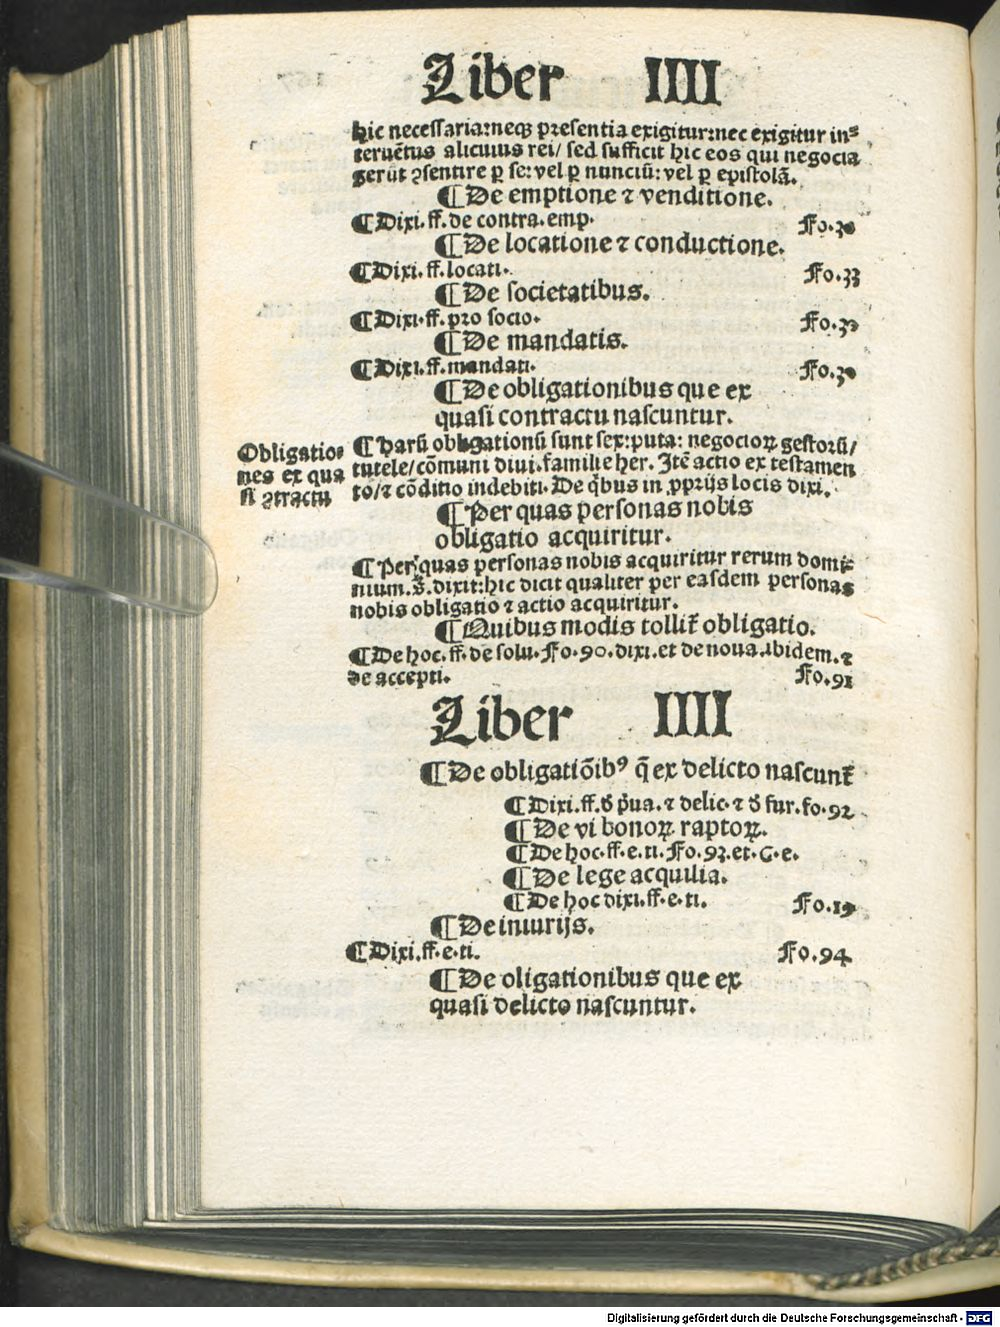 Liber IIII
hic necessaria:neqꝫ presentia exigitur:nec exigitur in⸗
teruētus alicuius rei/ sed sufficit hic eos qui negocia
gerūt ꝯsentire ꝑ se: vel ꝑ nunciū: vel ꝑ epistolā.
¶ De emptione ⁊ venditione.
¶ Dixi. ff. de contra. emp. Fo.30
¶ De locatione ⁊ conductione.
¶ Dixi. ff. locati. Fo.33
¶ De societatibus.
¶ Dixi. ff. pro socio.
¶ De mandatis.
¶ Dixi. ff. mandati. Fo.30
¶ De obligationibus que ex
quasi contractu nascuntur.
Obligatio⸗
nes ex qua
si ꝯtractu
¶ Harū obligationū sunt sex: puta: negocioꝝ gestorū/
tutele/ cōmuni diui. familie her. Itē actio ex testamen
to/ ⁊ cōditio indebiti. De q̇bus in ꝓprijs locis dixi.
¶ Per quas personas nobis
obligatio acquiritur.
¶ Per quas personas nobis acquiritur rerum domi⸗
nium. s̄. dixit: hic dicit qualiter per easdem personas
nobis obligatio ⁊ actio acquiritur.
¶ Quibus modis tollit̄ obligatio.
¶ De hoc. ff. de solu. Fo.90. dixi. et de noua. ibidem. ⁊
de accepti. Fo.91
Liber IIII
¶ De obligatiōibꝰ q̄ ex delicto nascunt̄
¶ Dixi. ff. đ p̓ua. ⁊ delic. ⁊ đ fur. fo.92
¶ De vi bonoꝝ raptoꝝ.
¶ De hoc. ff. e. ti. Fo.93. et. C. e.
¶ De lege acquilia.
¶ De hoc dixi. ff. e. ti. Fo.19
¶ De iniurijs.
¶ Dixi. ff. e. ti. Fo.94
¶ De oligationibus que ex
quasi delicto nascuntur.
Digitalisierung gefördert durch die Deutsche Forschungsgemeinschaft - DFG